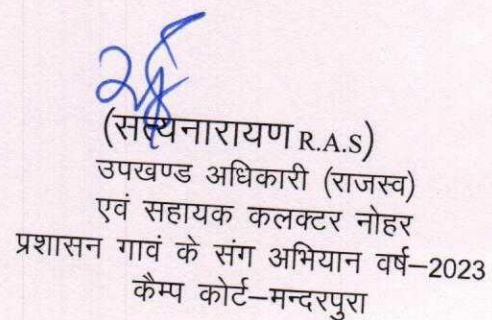 (सत्यनारायण R.A.S)
उपखण्ड अधिकारी (राजस्व)
एवं सहायक कलक्टर नोहर
प्रशासन गावं के संग अभियान वर्ष–2023
कैम्प कोर्ट–मन्दरपुरा